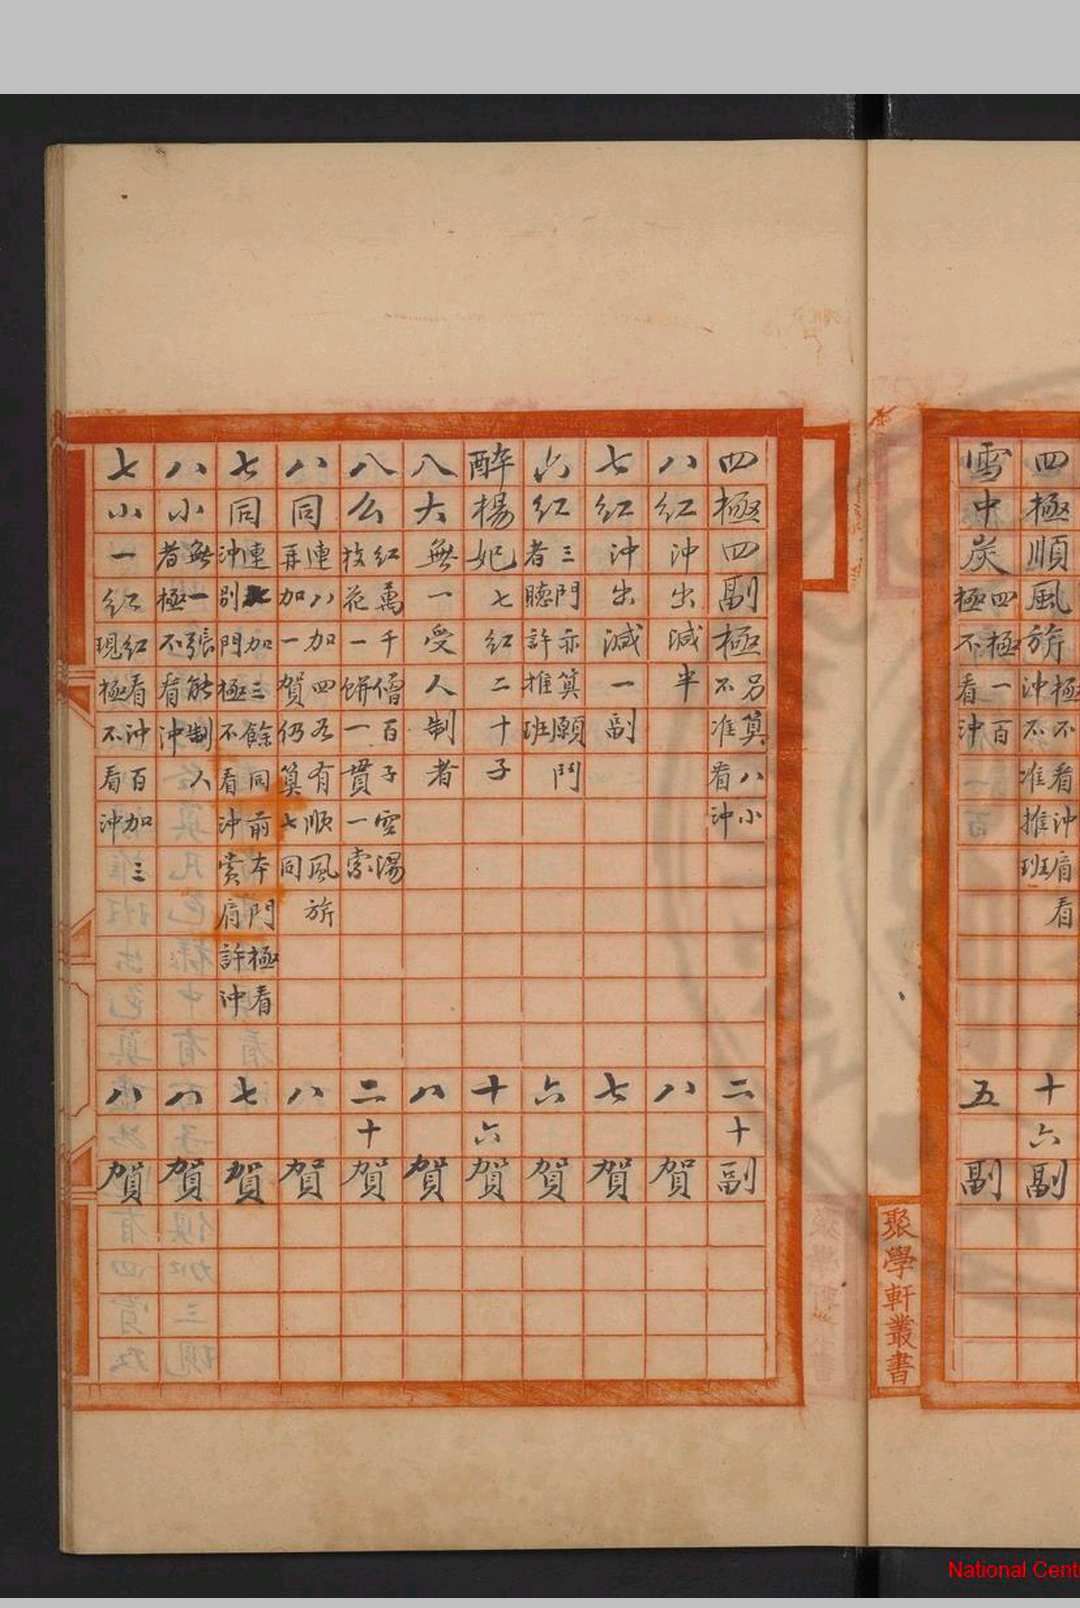 四極順風旂 極不看沖肩看 沖不准推班 十六副
雪中炭 四極一百 極不看沖 五副
聚學軒叢書
四極四副極 另算八小 不准看沖 二十副
八紅沖出減半 八賀
七紅沖出減一副 七賀
六紅 三門亦算願鬥 者聽許推班 六賀
醉楊妃七紅二十子 十六賀
八大無一受人制者 八賀
八公 紅萬千僧百子空湯 枝花一餅一貫一索 二十賀
八同 連八加四若有順風旂 再加一賀仍算七同 八賀
七同 連加三餘同前本門極看 沖別門極不看沖賞肩許沖 七賀
八小 無一張能制人 者極不看沖 八賀
七小一紅 紅看沖百加三 現極不看沖 八賀
National Cent